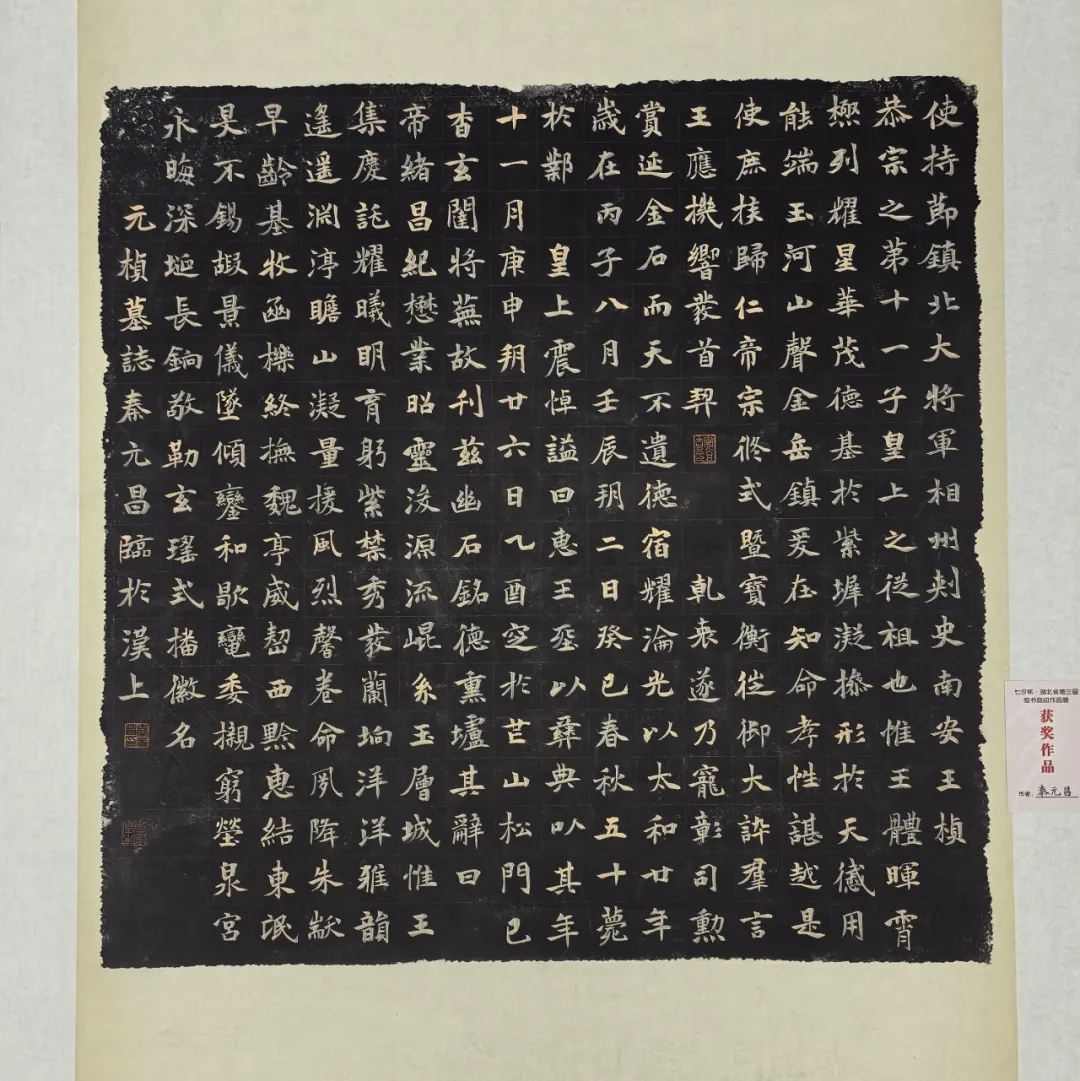 使持節鎮北大將軍相州刾史南安王楨
恭宗之第十一子皇上之從祖也惟王體暉霄
極列耀星華茂德基於紫墀凝操形於天感用
能端玉河山聲金岳鎮爰在知命孝性諶越是
使庶族歸仁帝宗脩式暨寶衡從御大訟羣言
王應機響發首契 乾衷遂乃寵彰司勳
賞延金石而天不遺德宿耀淪光以太和廿年
歲在丙子八月壬辰朔二日癸巳春秋五十薨
於鄴 皇上震悼謚曰惠王葬以彝典以其年
十一月庚申朔廿六日乙酉窆於芒山松門已
杳玄闈將蕪故刊茲幽石銘德熏壚其辭曰
帝緒昌紀懋業昭靈浚源流崐系玉層城惟王
集慶託耀曦明育躬紫禁秀發蘭坰洋洋雅韻
遙遙淵渟瞻山凝量援風烈馨卷命夙降朱黻
早齡基牧函櫟終撫魏亭威韶西黔惠結東氓
旻不錫嘏景儀墜傾鑾和歇鸞委櫬窮塋泉宮
永晦深埏長銷敬勒玄瑤式播徽名
元楨墓誌秦元昌臨於漢上
七夕杯·湖北省第三届
临书临印作品展
获奖作品
作者：秦元昌